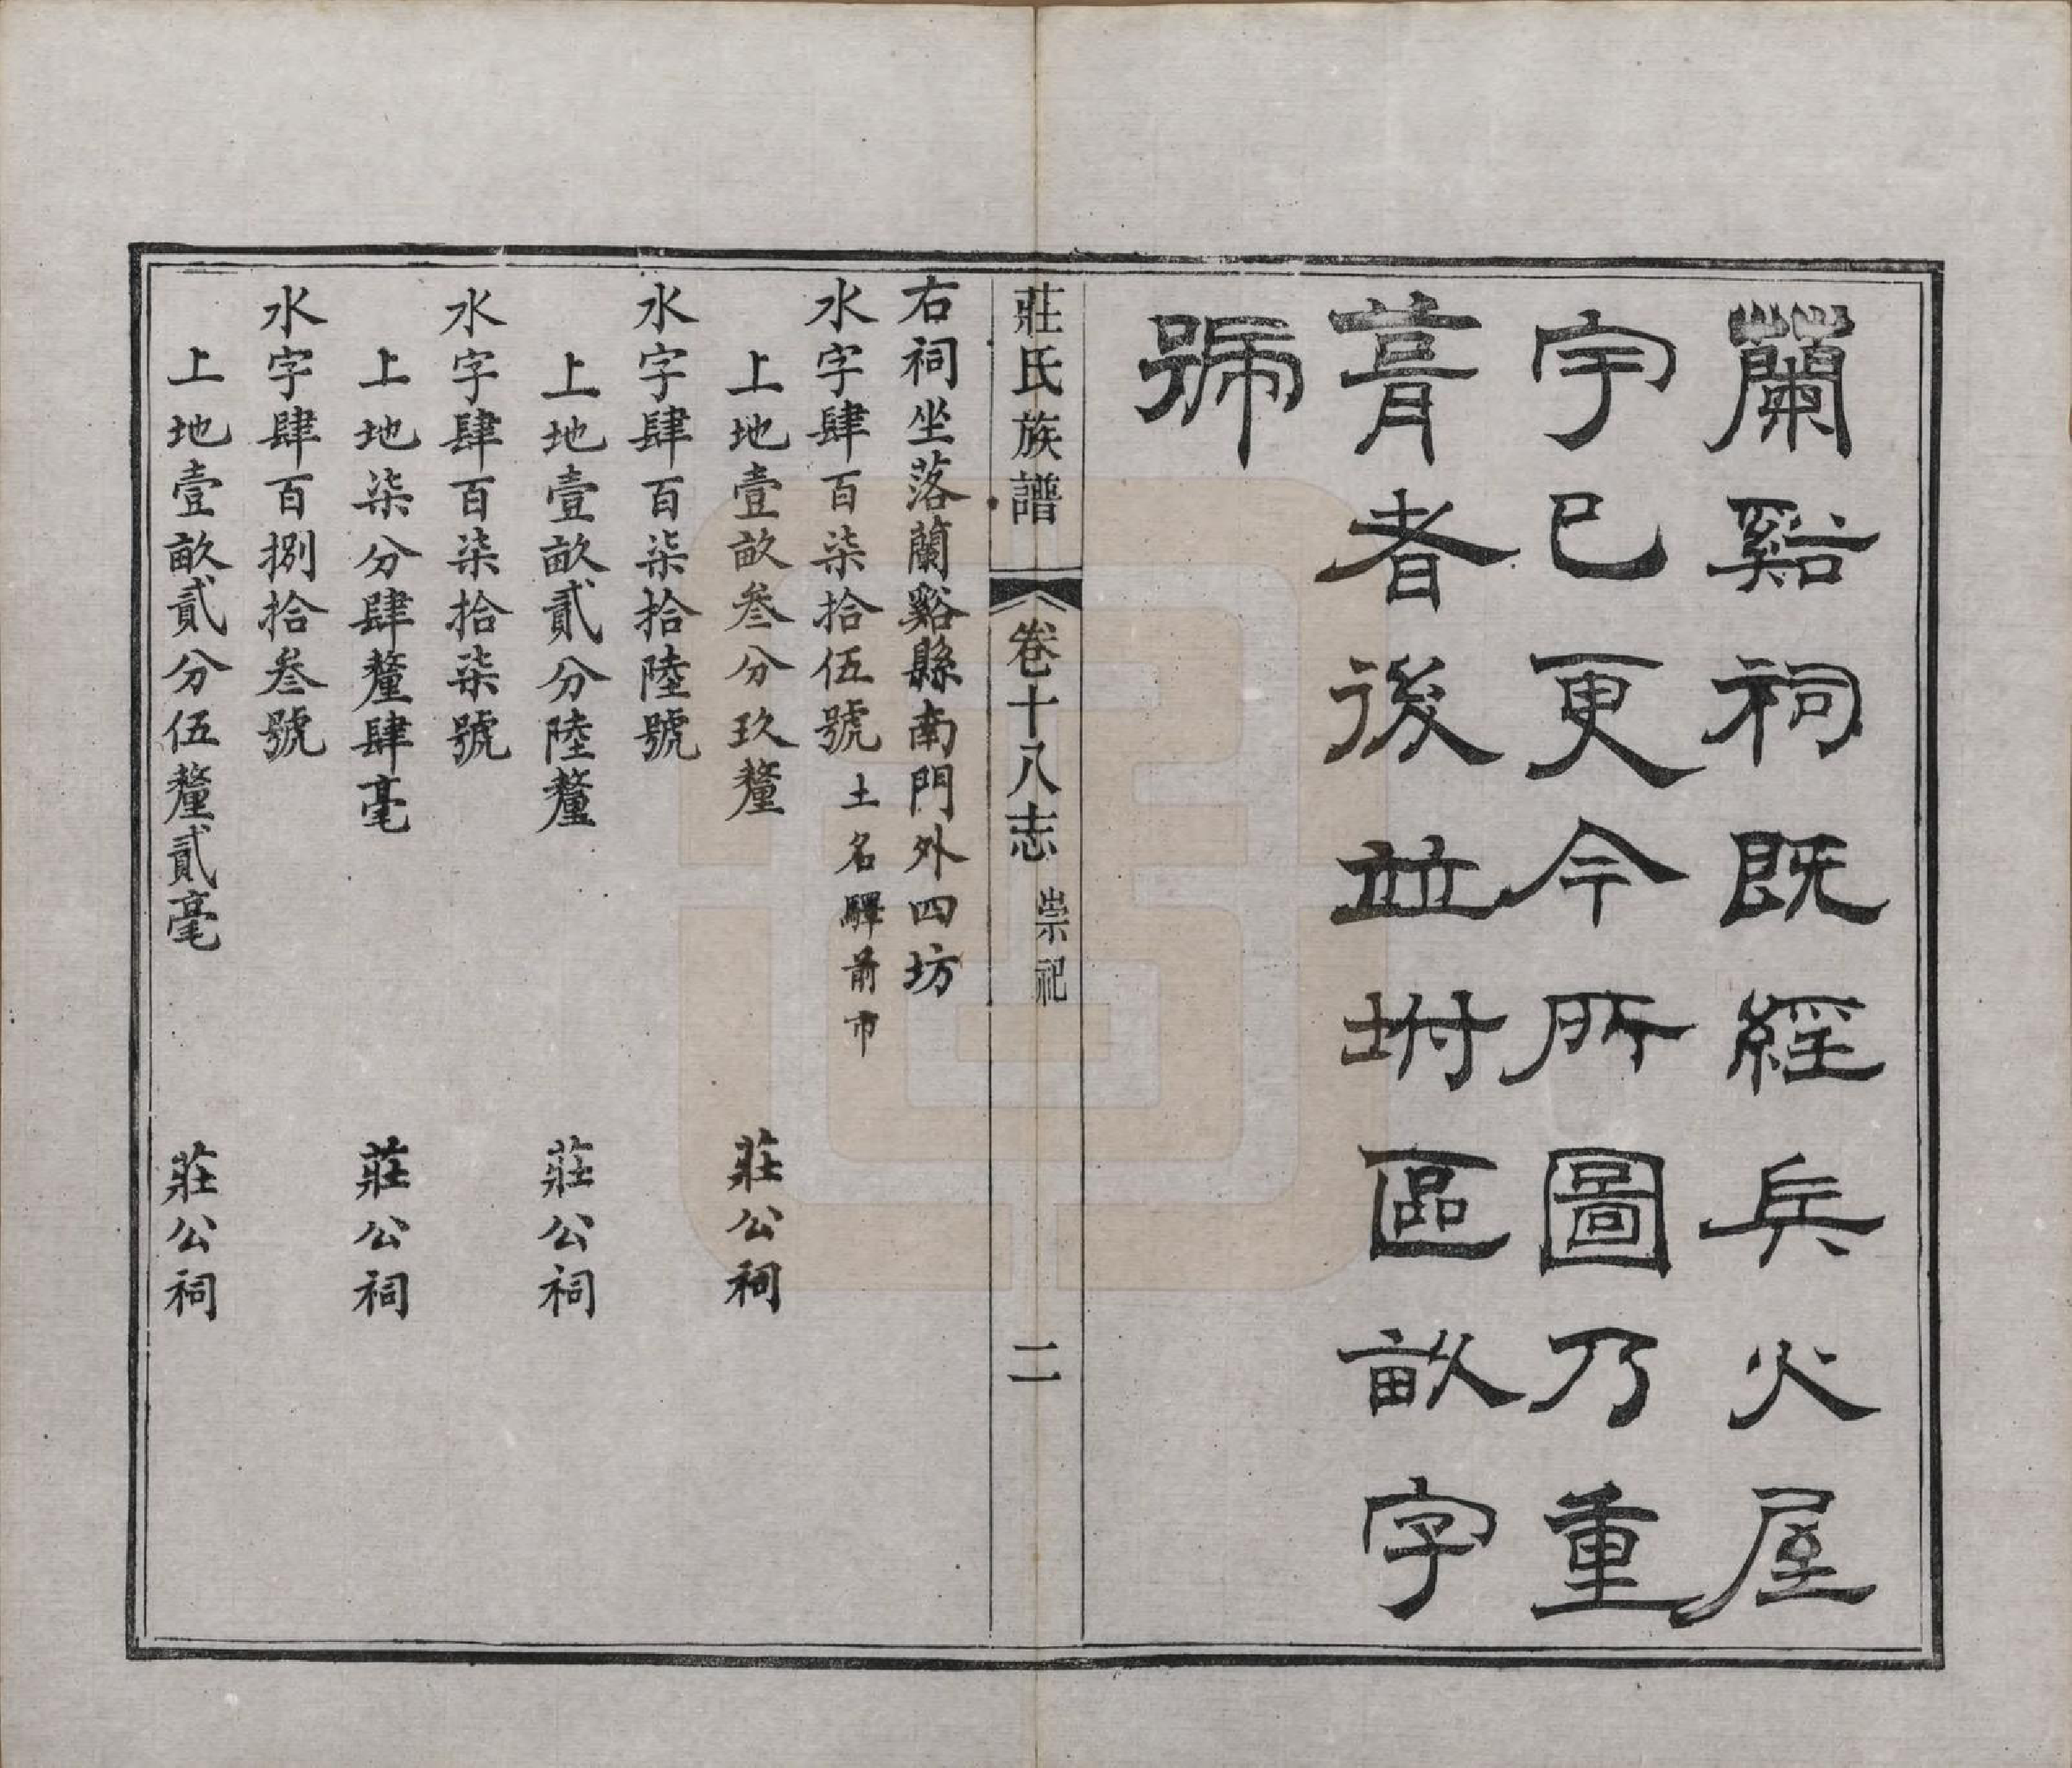 蘭谿祠既經兵火屋
宇已更今所圖乃重
葺者後並坿區畝字
號
莊氏族譜 卷十八志 崇祀 二
右祠坐落蘭谿縣南門外四坊
水字肆百柒拾伍號 土名驛前市
上地壹畝叁分玖釐 莊公祠
水字肆百柒拾陸號
上地壹畝貳分陸釐 莊公祠
水字肆百柒拾柒號
上地柒分肆釐肆毫 莊公祠
水字肆百捌拾叁號
上地壹畝貳分伍釐貳毫 莊公祠